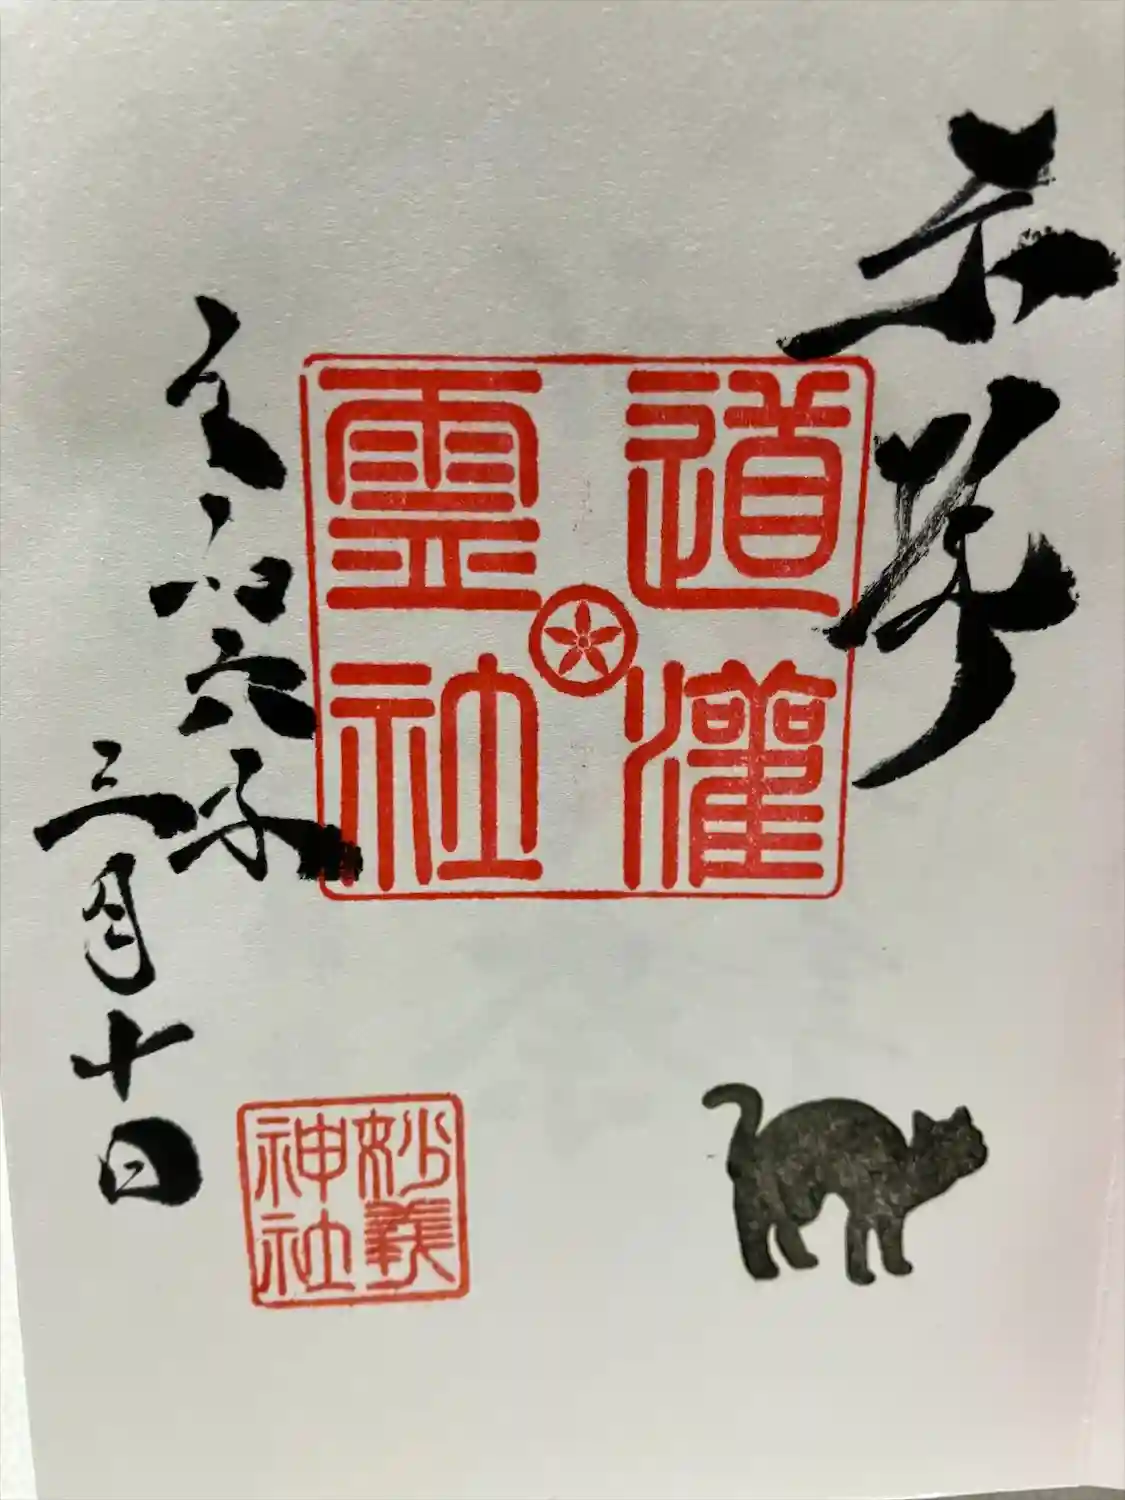 道灌
霊社
令和六年
三月十日
妙義
神社